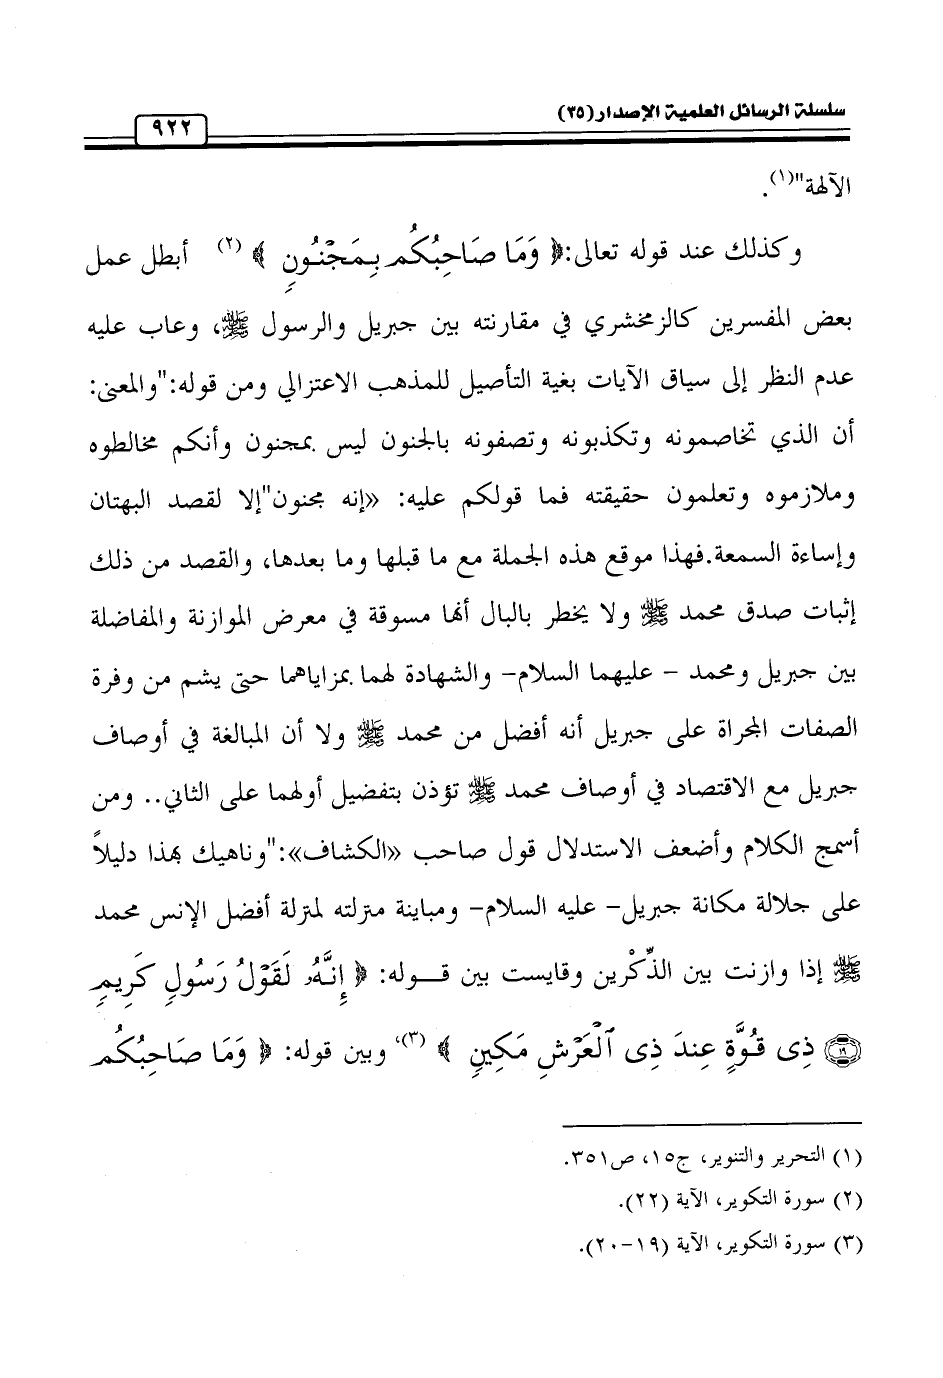 سلسلة الرسائل العلمية الإصدار (٣٥)
٩٢٢
الآلهة"(١).
وكذلك عند قوله تعالى:﴿ وَمَا صَاحِبُكُم بِمَجْنُونٍ ﴾ (٢) أبطل عمل
بعض المفسرين كالزمخشري في مقارنته بين جبريل والرسول ﷺ، وعاب عليه
عدم النظر إلى سياق الآيات بغية التأصيل للمذهب الاعتزالي ومن قوله:"والمعنى:
أن الذي تخاصمونه وتكذبونه وتصفونه بالجنون ليس بمجنون وأنكم مخالطوه
وملازموه وتعلمون حقيقته فما قولكم عليه: «إنه مجنون"إلا لقصد البهتان
وإساءة السمعة.فهذا موقع هذه الجملة مع ما قبلها وما بعدها، والقصد من ذلك
إثبات صدق محمد ﷺ ولا يخطر بالبال أنها مسوقة في معرض الموازنة والمفاضلة
بين جبريل ومحمد - عليهما السلام- والشهادة لهما بمزاياهما حتى يشم من وفرة
الصفات المجراة على جبريل أنه أفضل من محمد ﷺ ولا أن المبالغة في أوصاف
جبريل مع الاقتصاد في أوصاف محمد ﷺ تؤذن بتفضيل أولهما على الثاني.. ومن
أسمج الكلام وأضعف الاستدلال قول صاحب «الكشاف»:"وناهيك بهذا دليلاً
على جلالة مكانة جبريل- عليه السلام- ومباينة منزلته لمنزلة أفضل الإنس محمد
ﷺ إذا وازنت بين الذِّكْرين وقايست بين قوله: ﴿ إِنَّهُۥ لَقَوْلُ رَسُولٍ كَرِيمٍ
١٩ ذِى قُوَّةٍ عِندَ ذِى ٱلْعَرْشِ مَكِينٍ ﴾ (٣)، وبين قوله: ﴿ وَمَا صَاحِبُكُم
(١) التحرير والتنوير، ج١٥، ص٣٥١.
(٢) سورة التكوير، الآية (٢٢).
(٣) سورة التكوير، الآية (١٩-٢٠).